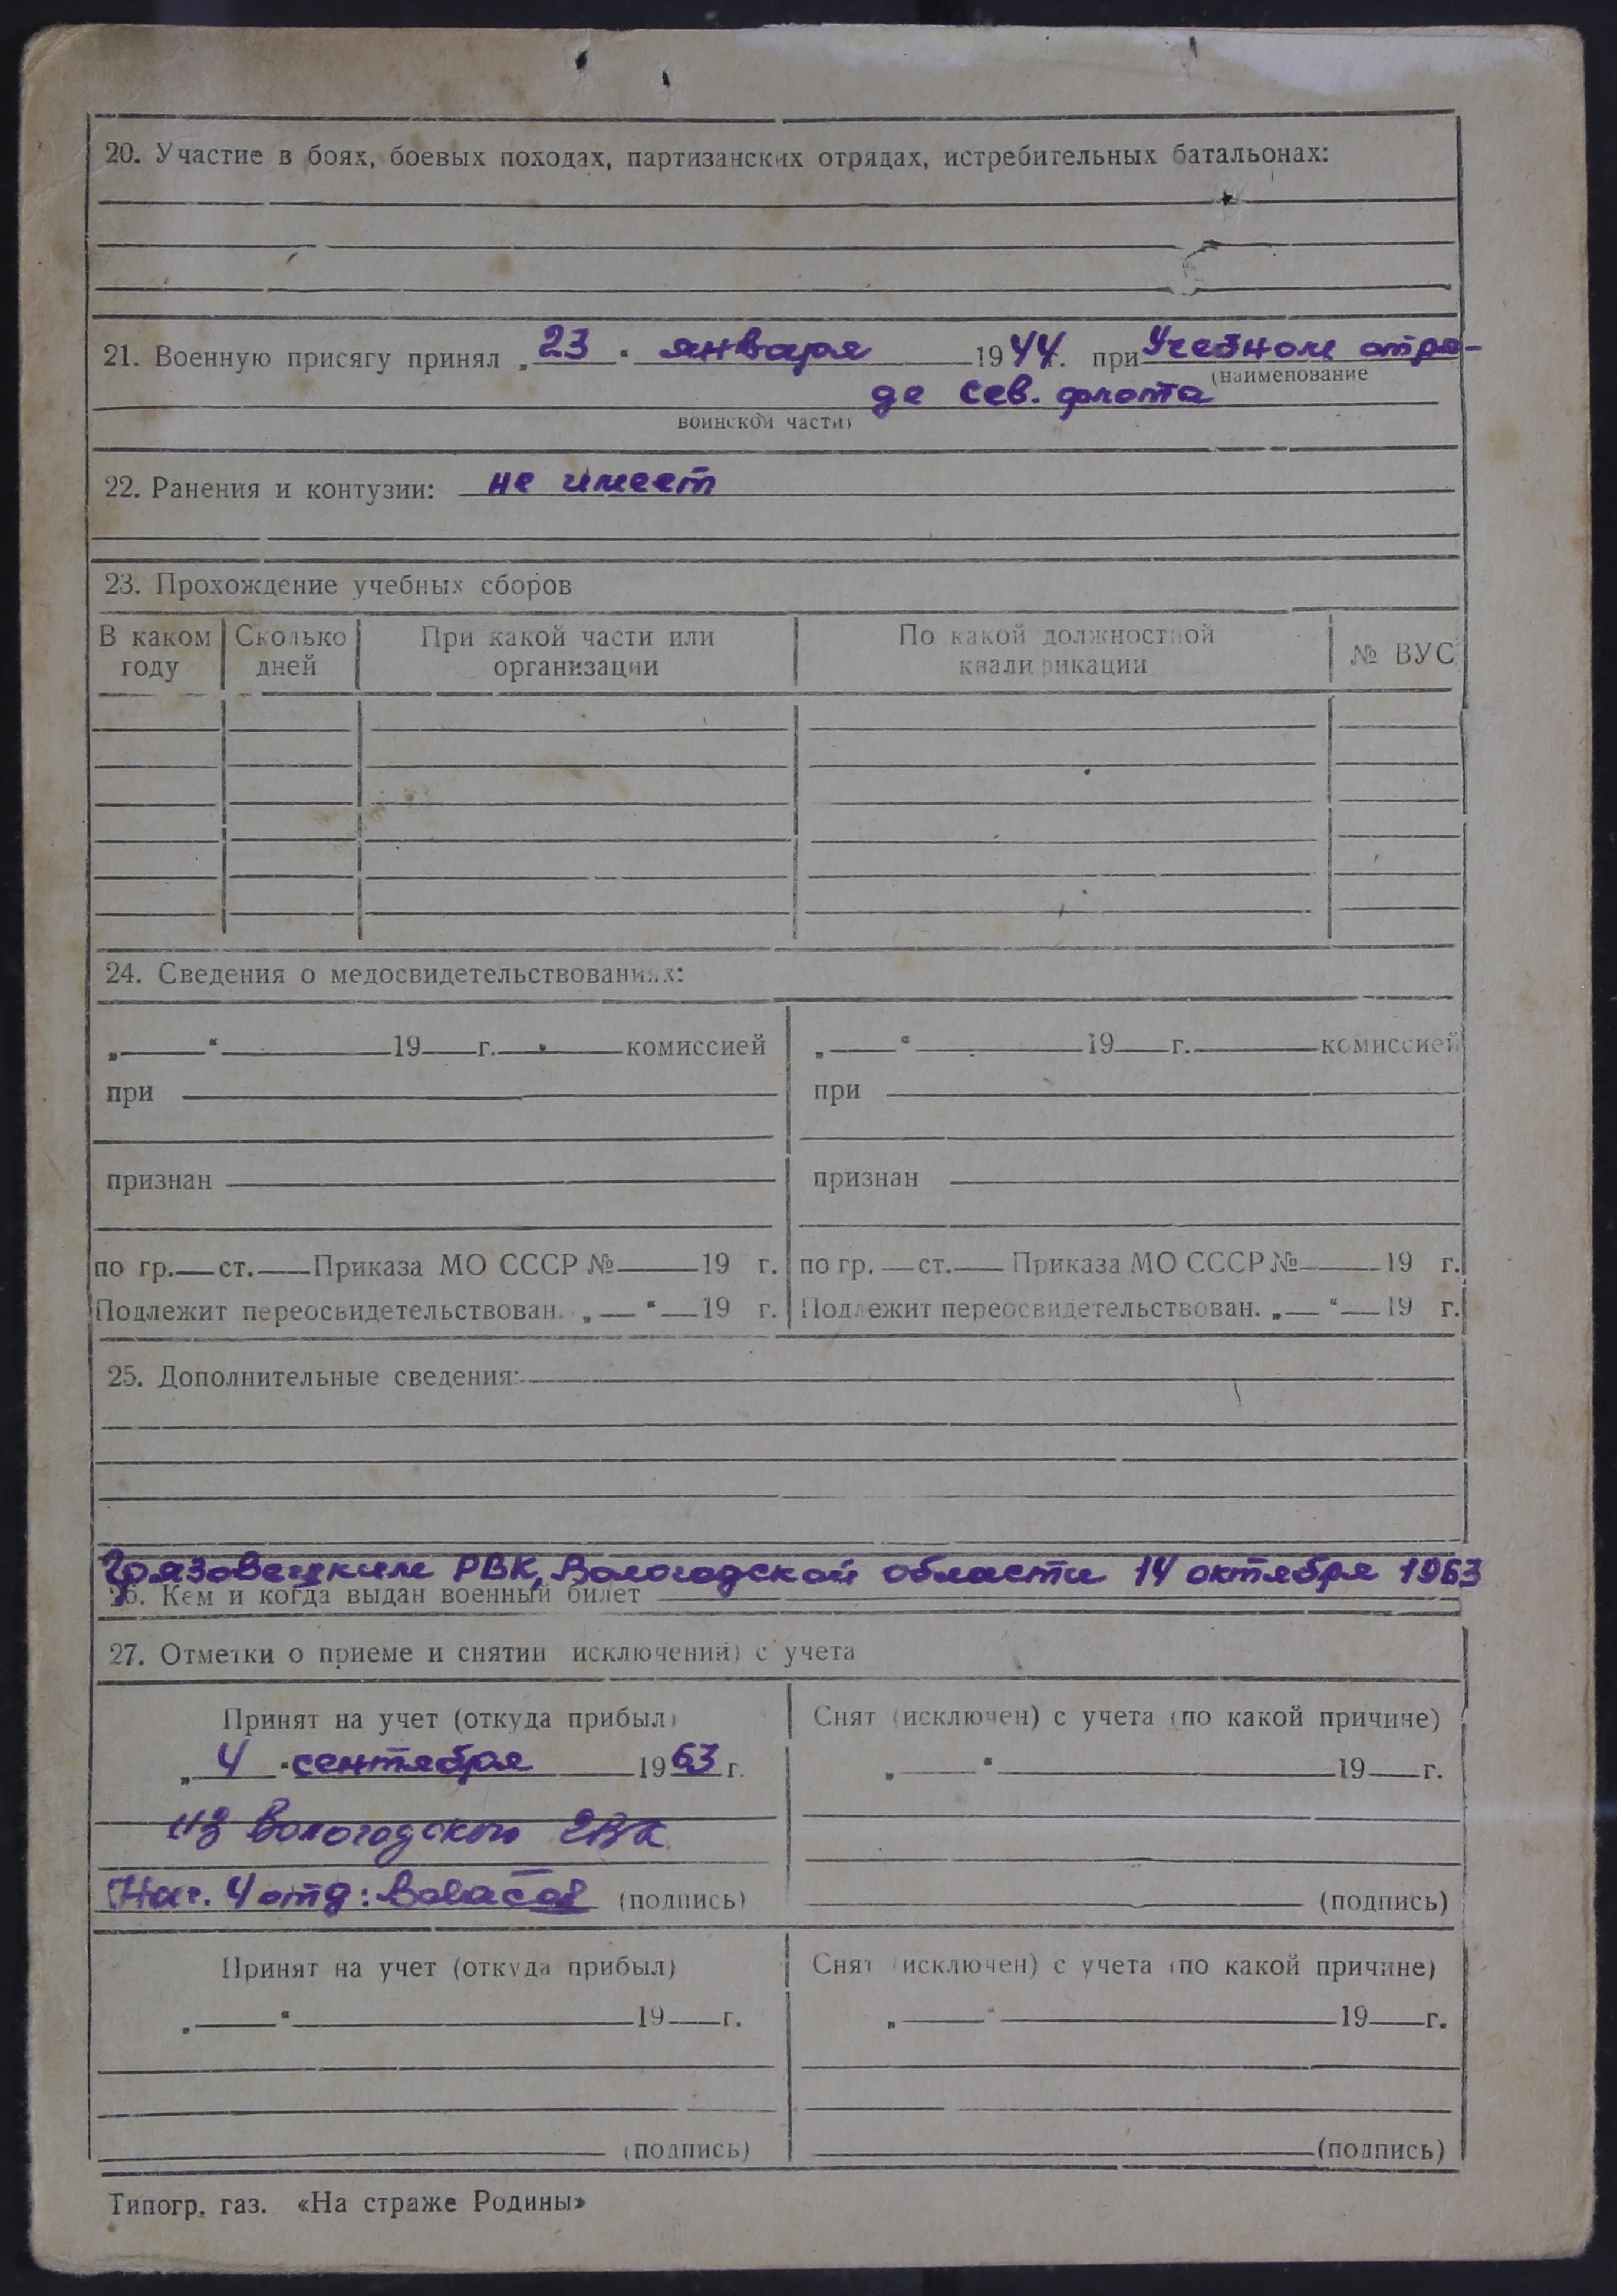 20. Участие в боях, боевых походах, партизанских отрядах, истребительных батальонах:
21. Военную присягу принял „23“ января 1944г. при Учебном отря-
(наименование
де Сев. флота
воинской части)
22. Ранения и контузии: не имеет
23. Прохождение учебных сборов
В каком году Сколько дней При какой части или организации По какой должностной квалификации № ВУС
24. Сведения о медосвидетельствованиях:
„ “ 19 г. комиссией „ “ 19 г. комиссией
при при
признан признан
по гр. ст. Приказа МО СССР № 19 г. по гр. ст. Приказа МО СССР № 19 г.
Подлежит переосвидетельствован. „ “ 19 г. Подлежит переосвидетельствован. „ “ 19 г.
25. Дополнительные сведения:
Грязовецким РВК, Вологодской области 14 октября 1963
26. Кем и когда выдан военный билет
27. Отметки о приеме и снятии исключении) с учета
Принят на учет (откуда прибыл) Снят (исключен) с учета (по какой причине)
„4“ сентября 1963 г. „ “ 19 г.
из Вологодского ГВК
Нач. 4 отд: (подпись) (подпись)
Принят на учет (откуда прибыл) Снят (исключен) с учета (по какой причине)
„ “ 19 г. „ “ 19 г.
(подпись) (подпись)
Типогр. газ. «На страже Родины»